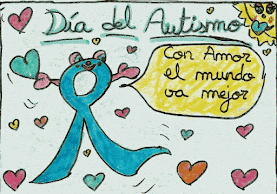 Día del Autismo
Con Amor
el mundo
va mejor